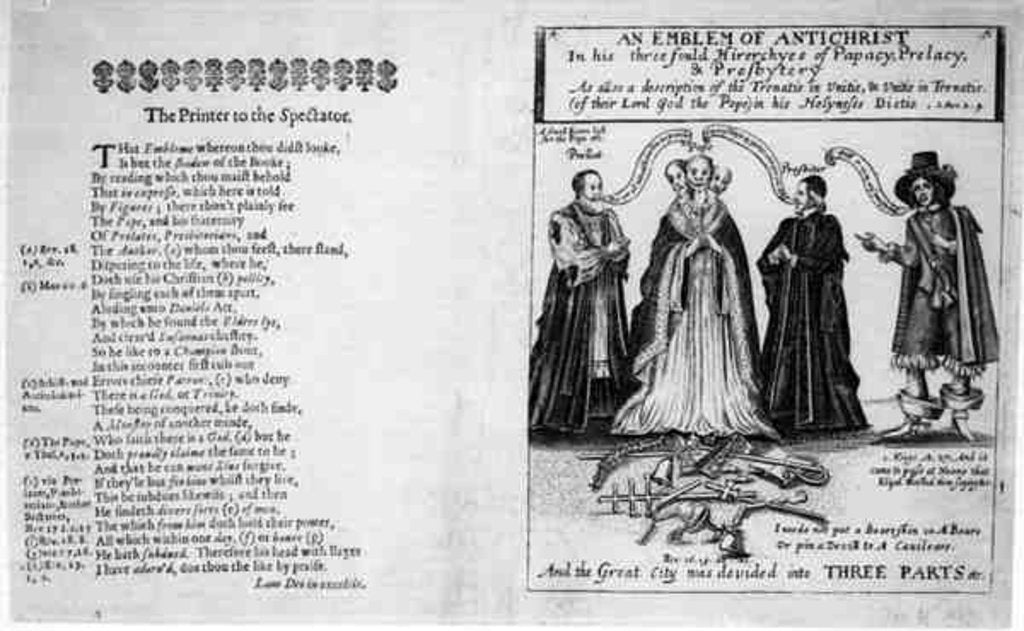 The Printer to the Spectator.
THat Embleme whereon thou didst looke,
Is but the Bodie of the Booke;
By reading which thou maist behold
That in expresse, which here is told
By Figures; there thou't plainly see
The Pope, and his fraternity
Of Prelates, Presbiterians, and
(a) Rev. 18.
The Author, (a) whom thou seest, there stand,
Disputing to the life, where he,
Doth use his Christian (b) policy,
By singling each of them apart,
Aluding unto Daniels Act,
By which he found the Elders lye,
And clear'd Susannas chastity.
So he like to a Champion stout,
In this incounter first culs out
Errors chiefe Patrons, (c) who deny
There is a God, or Trinity.
These being conquered, he doth finde,
A Monster of another minde,
(d) The Pope,
Who saith there is a God, (d) but he
Doth proudly claime the same to be;
And that he can mens Sins forgive,
If they'le but for him whilst they live,
This he subdues likewise; and then
He findeth divers sorts (e) of men,
The which from him doth hold their power,
All which within one day, (f) or houre (g)
He hath subdued. Therefore his head with Bayes
I have adorn'd, doe thou the like by praise.
Laus Deo
AN EMBLEM OF ANTICHRIST
In his three fould Hirerchyes of Papacy, Prelacy,
& Presbytery
As also a description of the Trenatie in Unitie, & Unitie in Trenatie.
(of their Lord God the Pope) in his Holynesse Dictis
Prelat
Presbiter
And it
came to passe at Noone that
Elijah Mocked them
I would not put a Beareskin on A Beare
Or pin a Devill to A Cavileare.
And the Great City was devided into THREE PARTS &c